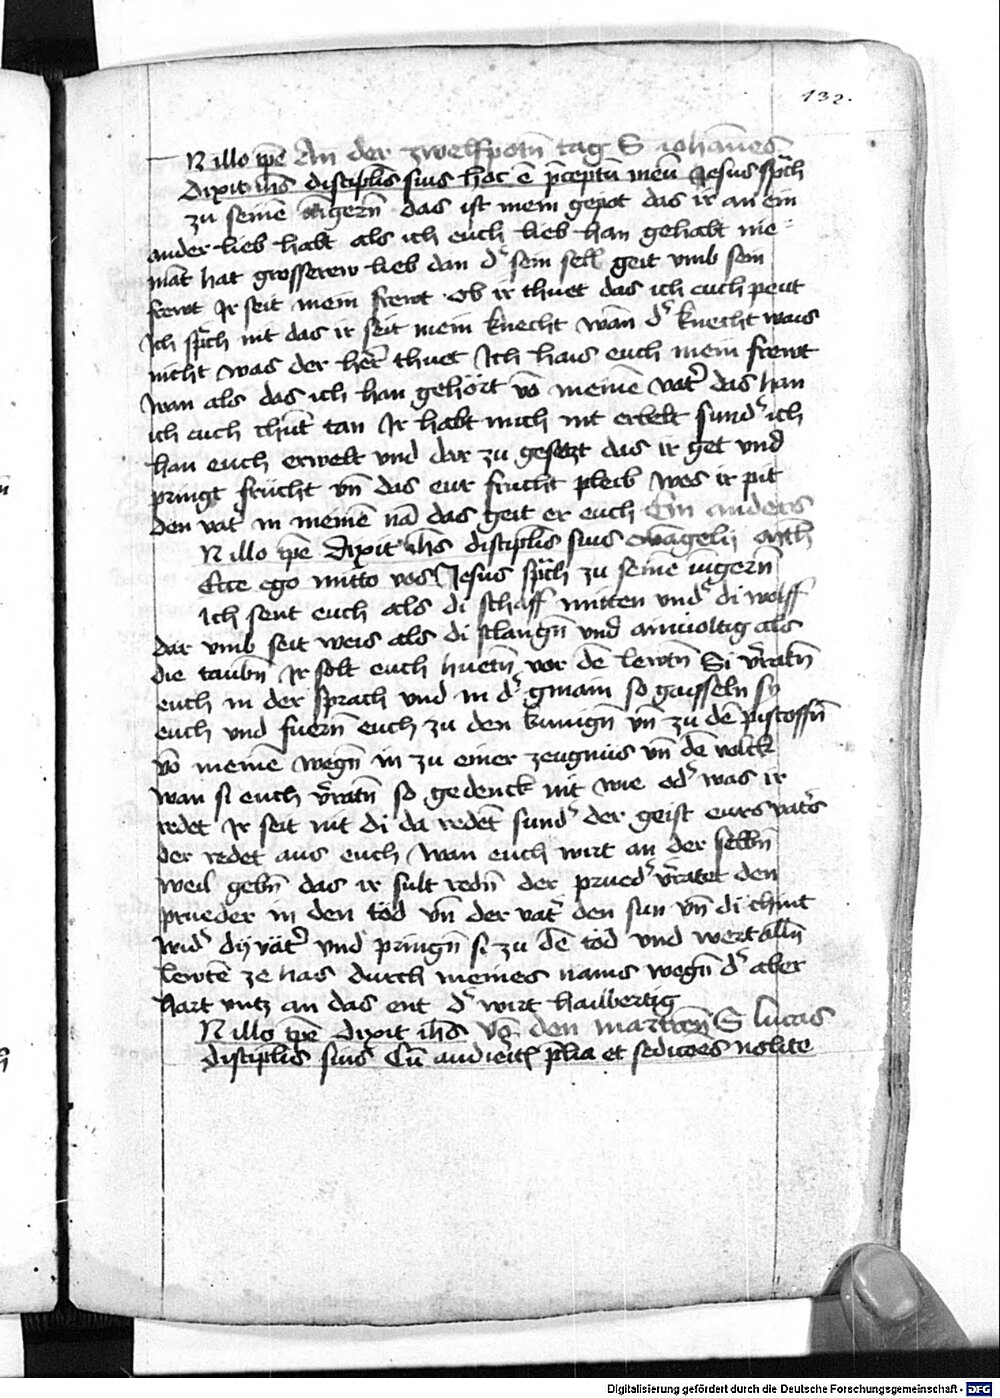 132.
N illo tpē An der zwelfpotn̄ tag S Iohānes
Dixit ih̄s disciplis suis hoc ē p̄ceptū meū Jesus sp̄ch
zu seinē iūgern̄ das ist mein gepot das ir an ein
ander lieb habt als ich euch lieb han gehabt nie
māt hat grosserew lieb dan d' sein sell geit vmb sein
frewt Ir seit mein frewt ob ir thuet das ich euch peut
Ich sp̄ch nit das ir seit mein knecht wan̄ d' knecht wais
nicht was der her̄ thuet Ich hais euch mein frewt
wan als das ich han gehört vō meinē vat' das han
ich euch chūt tan Ir habt mich nit erbelt sund' ich
han euch erwelt vnd dar zu gesetzt das ir get vnd
pringt frücht vn̄ das eur frucht pleib wes ir pit
den vat' in meinē nā das geit er euch Ein anders
N illo tpē Dixit ih̄s disciplis suis ewāgelij Mth
Ecce ego mitto vos Jesus sp̄ch zu seinē iūgern̄
Ich sent euch als di schaff mitten vnd' di wolff
dar vmb seit weis als di slangn̄ vnd ainuoltig als
die taubn̄ Ir solt euch huetn̄ vor dē lewtn̄ Si v'ratn̄
euch in der sprach vnd in d' gmain so gaisseln sy
euch vnd fuern̄ euch zu den kunign̄ vn̄ zu dē piscoffn̄
vō meinē wegn̄ in zu einer zeugnüs vn̄ dē volck
wan si euch v'ratn̄ so gedenck nit wie od' was ir
redet Ir seit nit di da redet̄ sund' der geist eurs vat's
der redet aus euch wan euch wirt an der selbn̄
weil gebn̄ das ir sult redn̄ der prued' v'ratet den
prueder in den töd vn̄ der vat' den sun vn̄ di chint
wid' dij vät' vnd pringn̄ si zu dē töd vnd wert alln̄
lewtē ze has durch meines nams wegn̄ d' aber
hart vntz an das ent d' wirt hailbertig
N illo tpē dixit ih̄s Vō den martrern̄ S Lucas
disciplis suis Cū audierit̄ p̄lia et sedicōes nolite
Digitalisierung gefördert durch die Deutsche Forschungsgemeinschaft - DFG